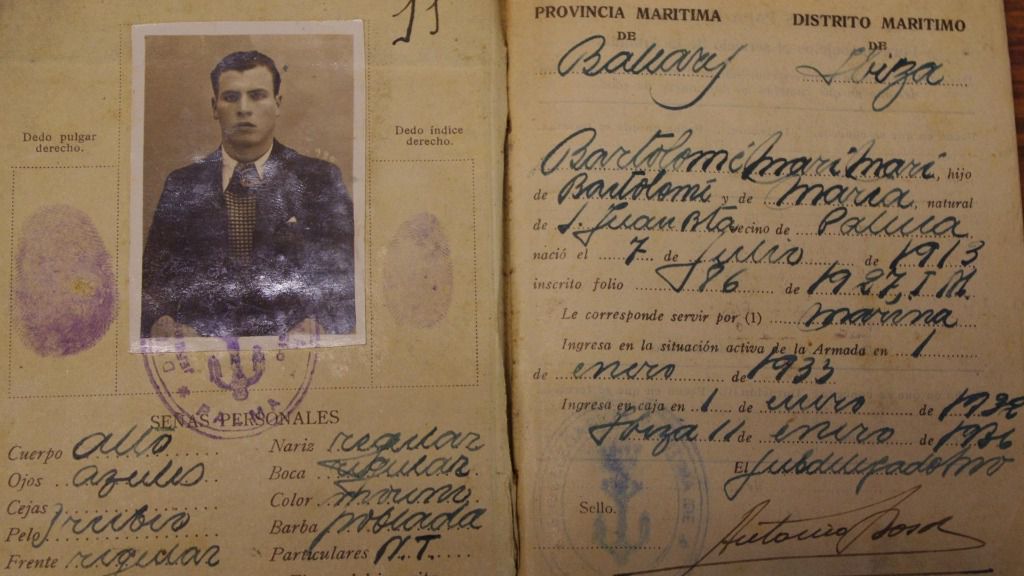 11
Dedo pulgar
derecho.
Dedo índice
derecho.
PALMA
SEÑAS PERSONALES
Cuerpo alto
Ojos azules
Cejas
Pelo rubio
Frente regular
Nariz regular
Boca regular
Color moreno
Barba poblada
Particulares N.T.
PROVINCIA MARITIMA
DE
Baleares
DISTRITO MARITIMO
DE
Ibiza
Bartolomé Marí Marí, hijo
de Bartolomé y de María, natural
de S. Juan Bta vecino de Palma
nació el 7 de Julio de 1913
inscrito folio 176 de 1927, I.M.
Le corresponde servir por (1) marina
Ingresa en la situación activa de la Armada en 1
de enero de 1933
Ingresa en caja en 1 de enero de 1932
Ibiza 11 de enero de 1936
El Subdelegado
Sello.
Antonio